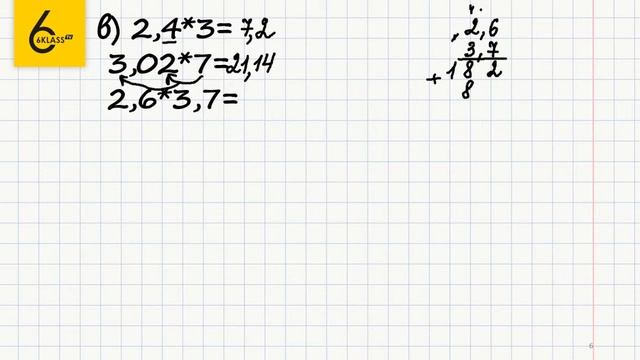 6KLASS
в) 2,4*3=7,2
3,02*7=21,14
2,6*3,7=
2,6
3,7
+ 1 8 2
8
6